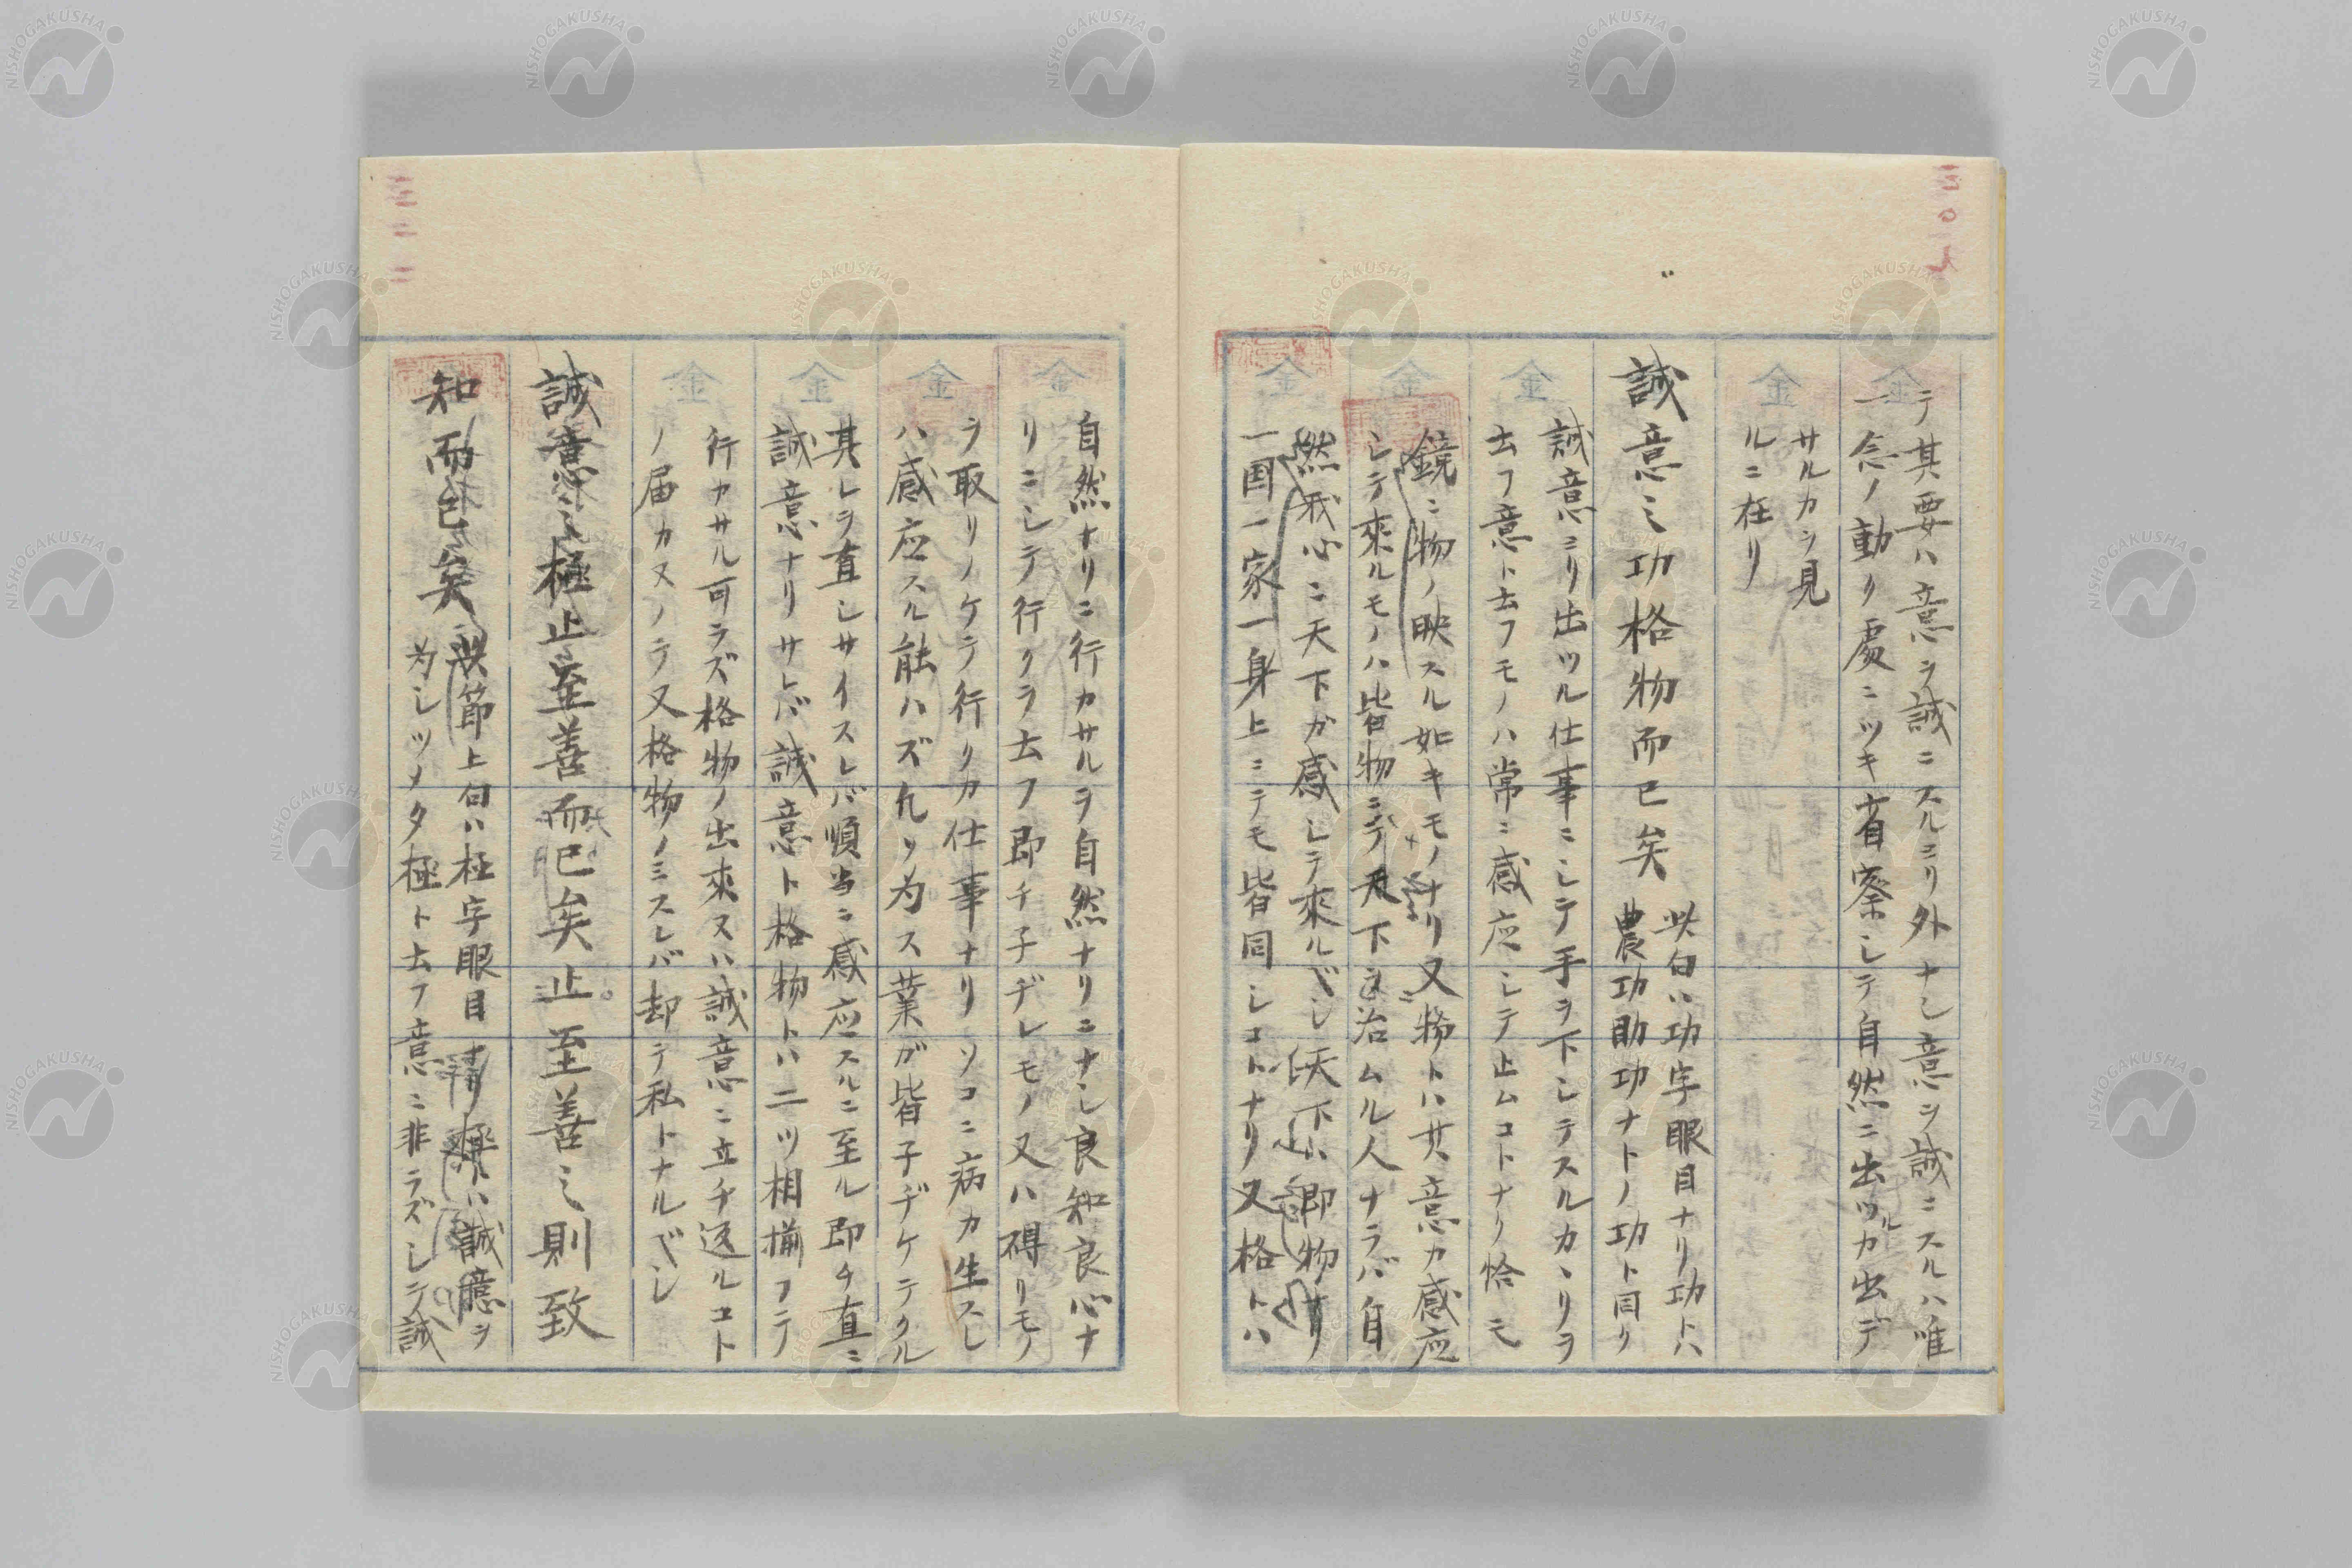 テ其要ハ意ヲ誠ニスルヨリ外ナシ意ヲ誠ニスルハ唯
一念ノ動ク處ニツキ省察シテ自然ニ出ツルカ出デ
サルカヲ見
ルニ在リ
誠意之功格物而已矣
此句ハ功字眼目ナリ功トハ
農功助功ナトノ功ト同ク
誠意ヨリ出ツル仕事ニシテ手ヲ下シテスルカヽリヲ
云フ意ト云フモノハ常ニ感応シテ止ムコトナク恰モ
鏡ニ物ノ映スル如キモノナリ又物トハ其意カ感応
シテ來ルモノハ皆物ニテ天下ヲ治ムル人ナラバ自
然我心ニ天下カ感シテ來ルベシ天下ハ即物ナリ
一国一家一身上ニテモ皆同シコトナリ又格トハ
自然ナリニ行カサルヲ自然ナリニナシ良知良心ナ
リニシテ行クヲ云フ即チ子ヂレモノ又ハ碍リモノ
ヲ取リノケテ行クカ仕事ナリソコニ病カ生スレ
ハ感応スル能ハズ凡ソ為ス業ガ皆子ヂケテクル
其レヲ直シサイスレバ順当ニ感応スルニ至ル即チ直ニ
誠意ナリサレバ誠意ト格物トハ二ツ相揃フテ
行カサル可ラズ格物ノ出來ヌハ誠意ニ立チ返ルコト
ノ届カヌノテ又格物ノミスレバ却テ私トナルベシ
誠意之極止至善而已矣止至善之則致
知而已矣
此節上句ハ極字眼目ナリ極トハ誠意ヲ
為シツメタ極ト云フ意ニ非ラズシテ誠
NISHOGAKUSHA